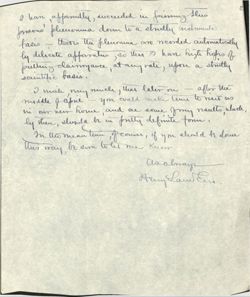 I have apparently, succeeded in pinning these
phenomena down to a strictly
basis — that is the phenomena are recorded automatically
by delicate apparatus, so that I have high hopes of
putting clairvoyance, at any rate, upon a strictly
scientific basis.
I wish very much, that later on — after the
middle of April you could make time to visit us
in our new home, and see some of my results, which,
by then, should be in pretty definite form.
In the mean time, of course, if you should be down
this way, be sure to let me know
As always